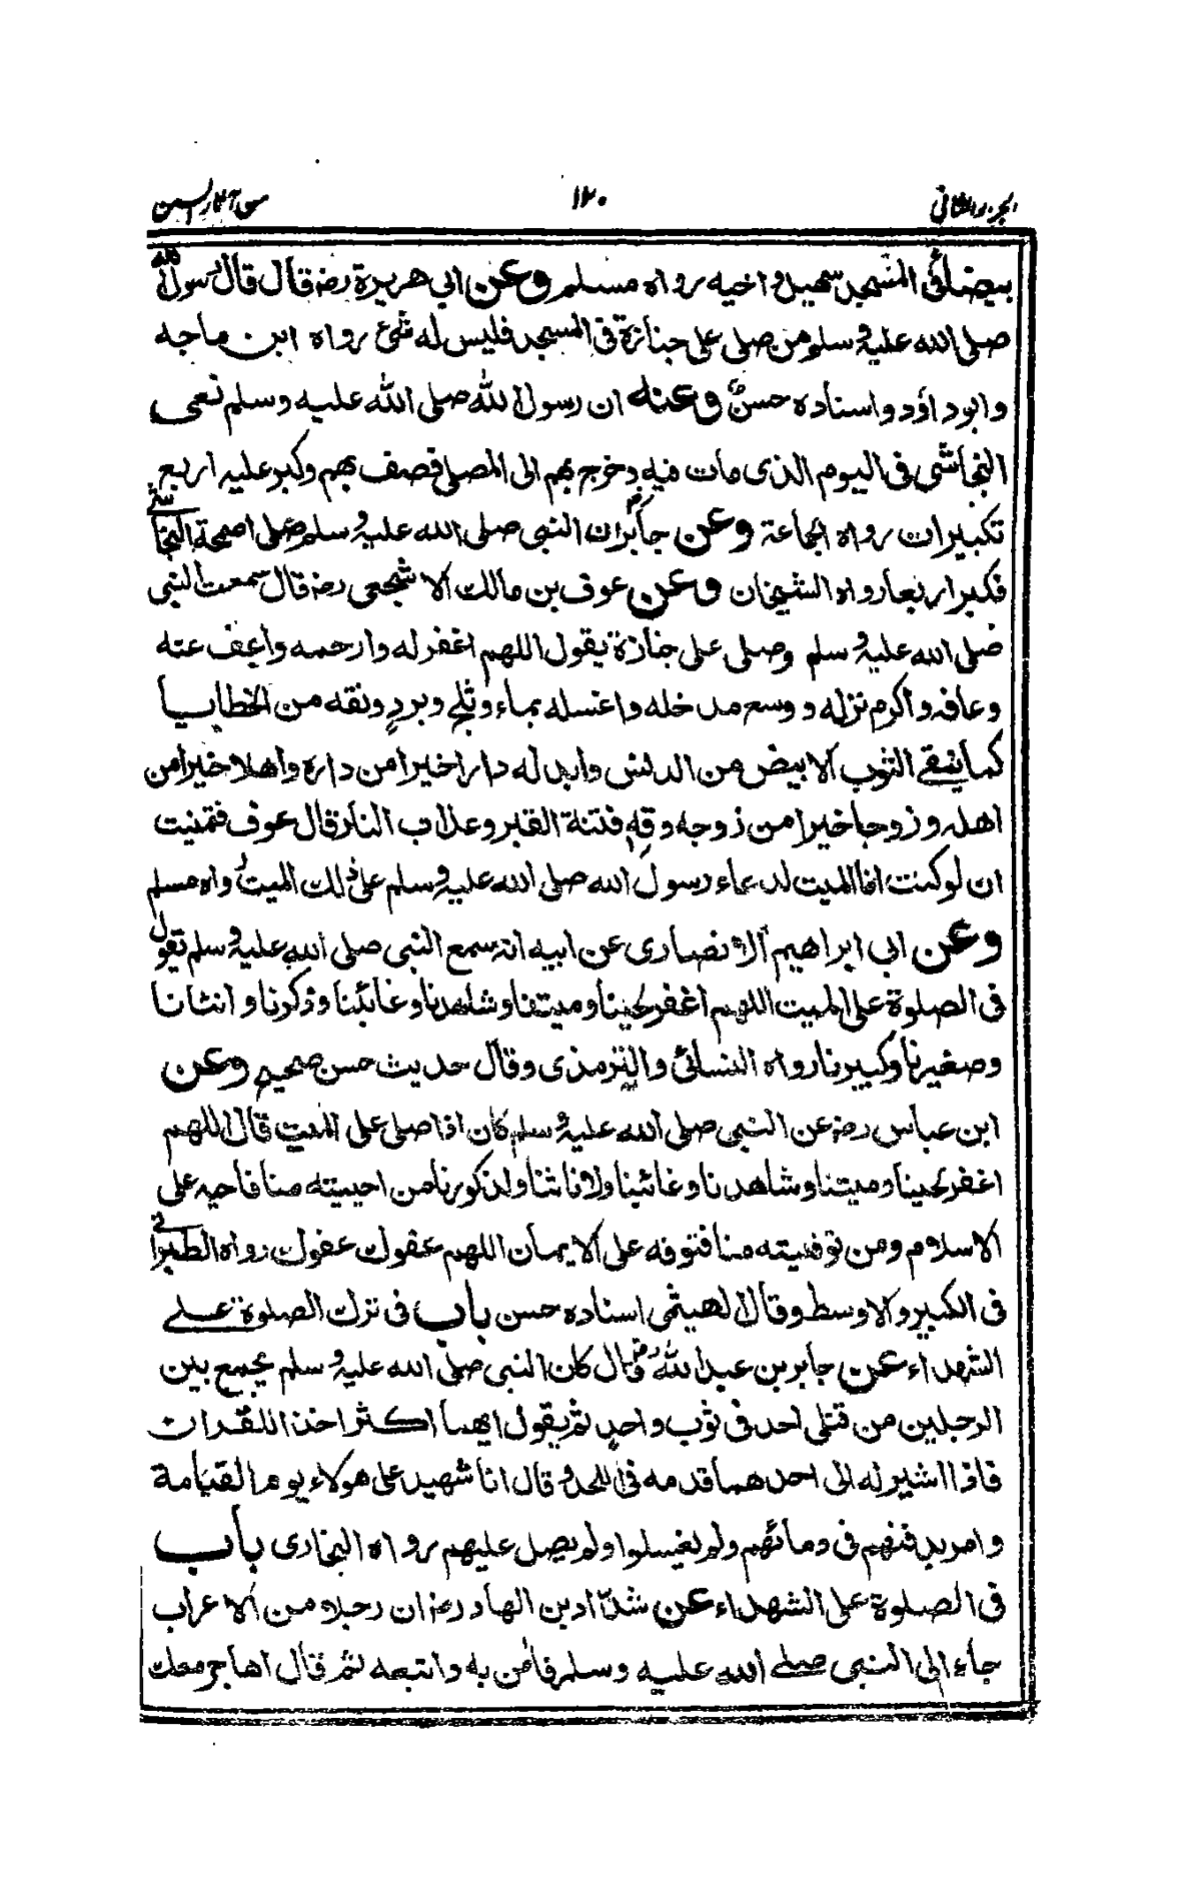 الجزء الثاني ١٢٠ من آثار السنن
بيضائ في المسجد سهيل واخيه رواه مسلم وعن ابي هريرة رضـ قال قال رسول الله
صلى الله عليه وسلم من صلى على جنازة في المسجد فليس له شئ رواه ابن ماجه
وابو داؤد واسناده حسن وعنه ان رسول الله صلى الله عليه وسلم نعى
النجاشي في اليوم الذي مات فيه وخرج بهم الى المصلى فصف بهم وكبر عليه اربع
تكبيرات رواه الجماعة وعن جابر رضـ ان النبي صلى الله عليه وسلم صلى اصحمة النجاشي
فكبر اربعا رواه الشيخان وعن عوف بن مالك الاشجعي رضـ قال سمعت النبي
صلى الله عليه وسلم وصلى على جنازة يقول اللهم اغفر له وارحمه واعف عنه
وعافه واكرم نزله ووسع مدخله واغسله بماء وثلج وبرد ونقه من الخطايا
كما ينقى الثوب الابيض من الدنس وابدله دارا خيرا من داره واهلا خيرا من
اهله وزوجا خيرا من زوجه وقه فتنة القبر وعذاب النار قال عوف فتمنيت
ان لو كنت انا الميت لدعاء رسول الله صلى الله عليه وسلم على ذلك الميت رواه مسلم
وعن ابي ابراهيم الانصاري عن ابيه انه سمع النبي صلى الله عليه وسلم يقول
في الصلوة على الميت اللهم اغفر لحينا وميتنا وشاهدنا وغائبنا وذكرنا وانثانا
وصغيرنا وكبيرنا رواه النسائي والترمذي وقال حديث حسن صحيح وعن
ابن عباس رضـ عن النبي صلى الله عليه وسلم كان اذا صلى على الميت قال اللهم
اغفر لحينا وميتنا وشاهدنا وغائبنا ولاناثنا ولذكورنا من احييته منا فاحيه على
الاسلام ومن توفيته منا فتوفه على الايمان اللهم عفوك عفوك رواه الطبراني
في الكبير والاوسط وقال الهيثمي اسناده حسن باب في ترك الصلوة على
الشهداء عن جابر بن عبد الله رضـ قال كان النبي صلى الله عليه وسلم يجمع بين
الرجلين من قتلى احد في ثوب واحد ثم يقول ايهما اكثر اخذا للقران
فاذا اشير له الى احدهما قدمه في اللحد وقال انا شهيد على هولاء يوم القيامة
وامر بدفنهم في دمائهم ولم يغسلوا ولم يصل عليهم رواه البخاري باب
في الصلوة على الشهداء عن شداد بن الهاد رضـ ان رجلا من الاعراب
جاء الى النبي صلى الله عليه وسلم فامن به واتبعه ثم قال اهاجر معك